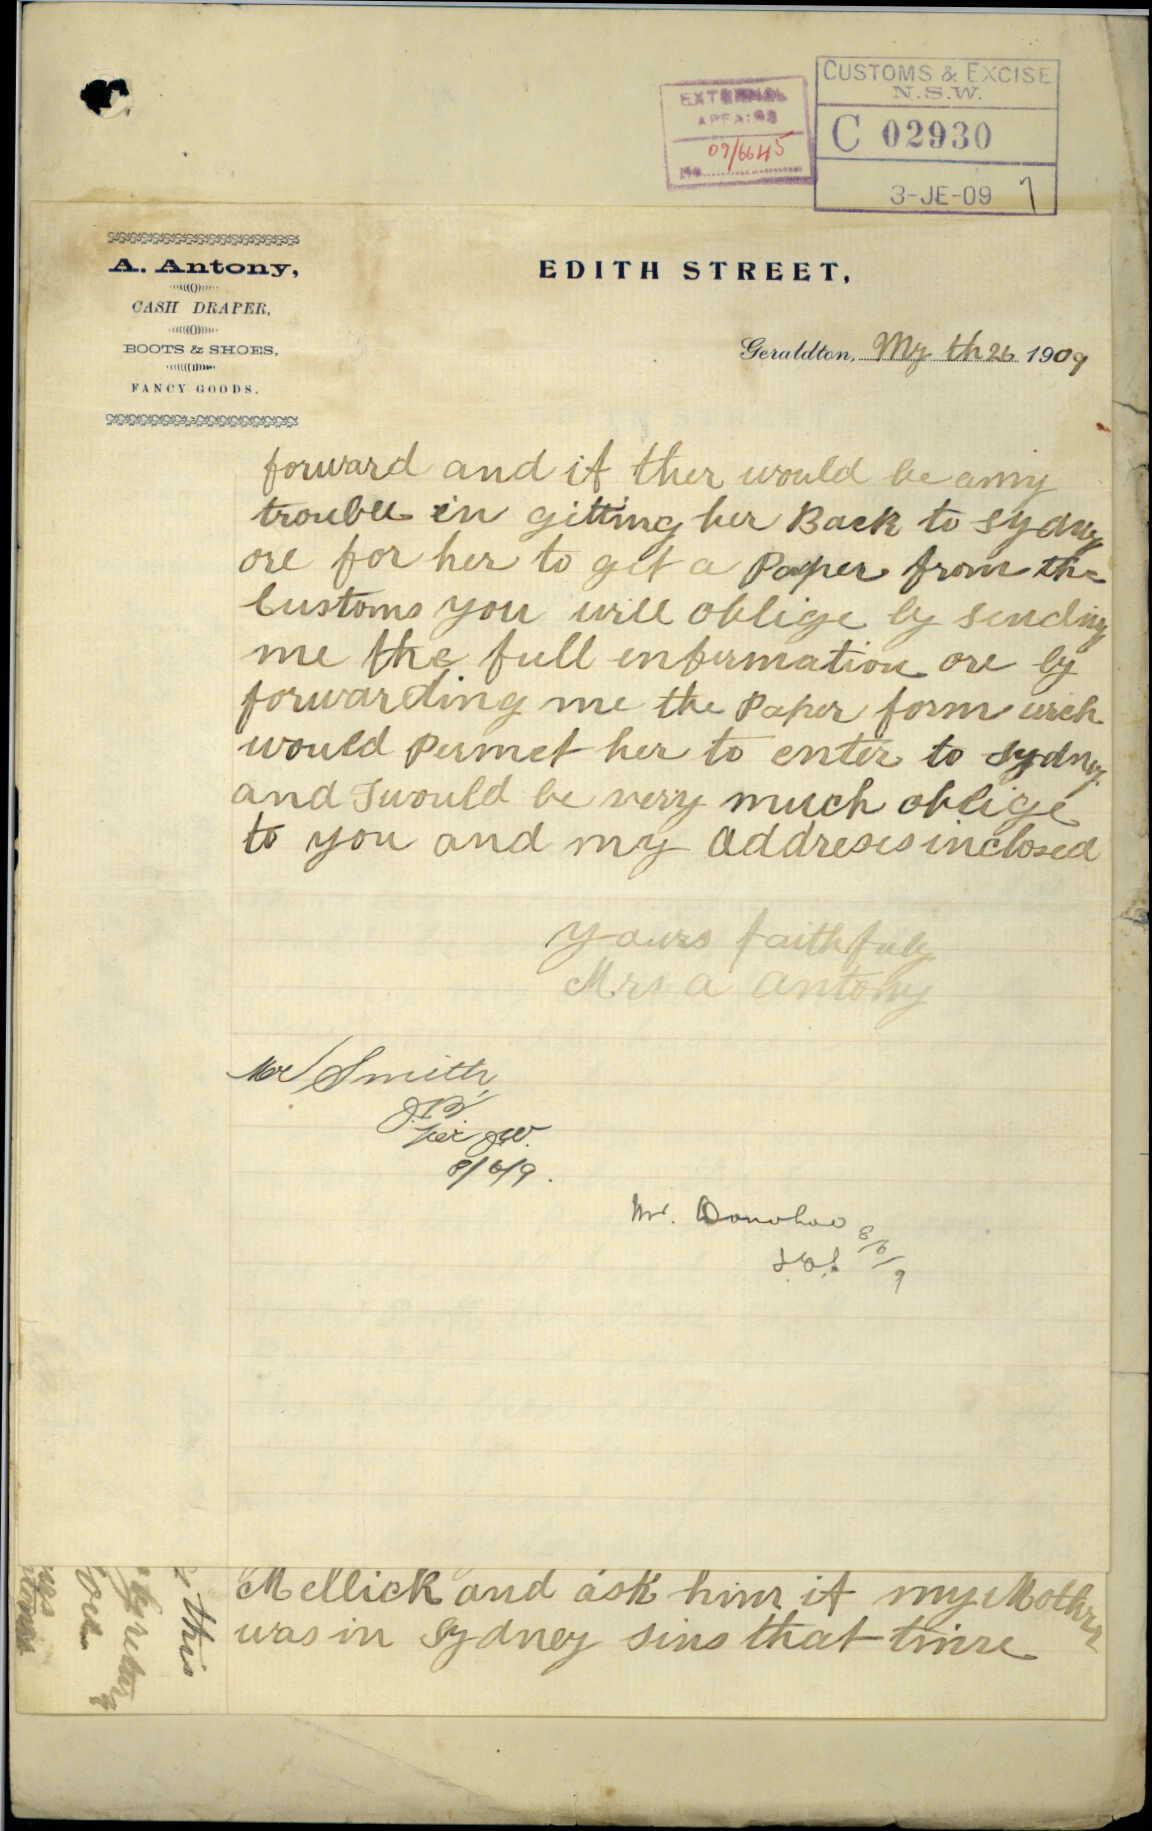 CUSTOMS & EXCISE
N.S.W.
C 02930
3-JE-09 7
EXTERNAL
AFFAIRS
No. 09/6645
A. Antony,
CASH DRAPER,
BOOTS & SHOES,
FANCY GOODS.
EDITH STREET,
Geraldton, My th 26 1909
forward and if ther would be anny
trouble in gitting her Back to Sydney
ore for her to get a Paper from the
Customs you will oblige by sending
me the full enfermation ore by
forwarding me the Paper form wich
would Permet her to enter to Sydney
and I would be very much oblige
to you and my Addreses inclosed
Yours faithfuly
Mrs a Antony
Mr Smith,
8/6/9.
Mr. Donohoo 8/6/9
Mellick and ask him if my Mother
was in Sydney sins that timre
this